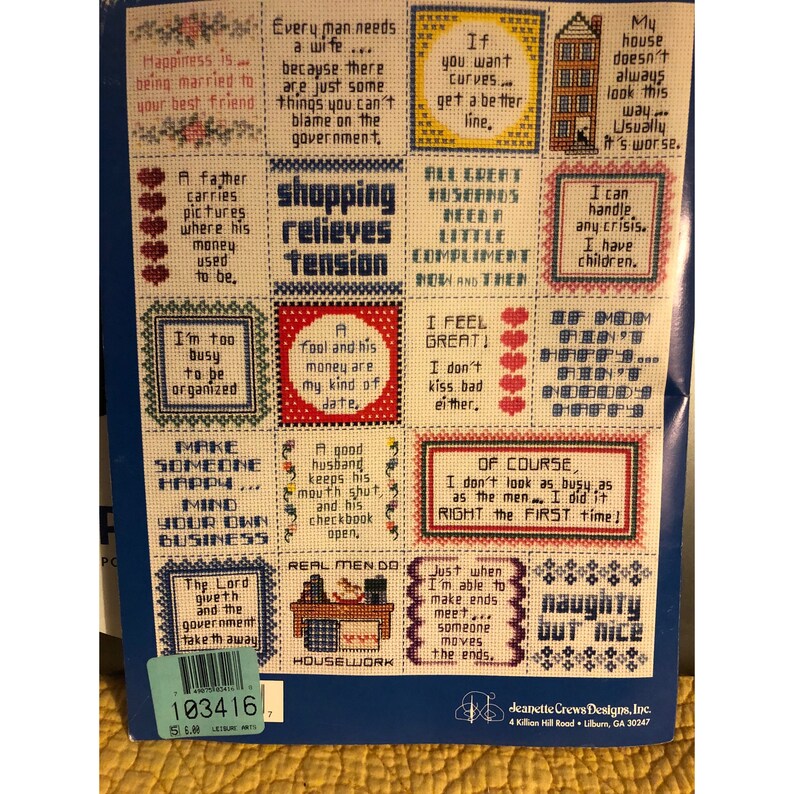 Happiness is...
being married to
your best friend
Every man needs
a wife ...
because there
are just some
things you can't
blame on the
government.
If
you want
curves...
get a better
line.
My
house
doesn't
always
look this
way...
Usually
it's worse.
A father
carries
pictures
where his
money
used
to be.
shopping
relieves
tension
ALL GREAT
HUSBANDS
NEED A
LITTLE
COMPLIMENT
NOW AND THEN
I can
handle
any crisis.
I have
children.
I'm too
busy
to be
organized
A
fool and his
money are
my kind of
date.
I FEEL
GREAT!
I don't
kiss bad
either.
IF MOM
AIN'T
HAPPY...
AIN'T
NOBODY
HAPPY
MAKE
SOMEONE
HAPPY...
MIND
YOUR OWN
BUSINESS
A good
husband
keeps his
mouth shut,
and his
checkbook
open.
OF COURSE,
I don't look as busy as
as the men... I did it
RIGHT the FIRST time!
The Lord
giveth
and the
government
taketh away
REAL MEN DO
HOUSEWORK
Just when
I'm able to
make ends
meet...
someone
moves
the ends.
naughty
but nice
7 49075 03416 0
103416
7
5 6.00 LEISURE ARTS
Jeanette Crews Designs, Inc.
4 Killian Hill Road • Lilburn, GA 30247